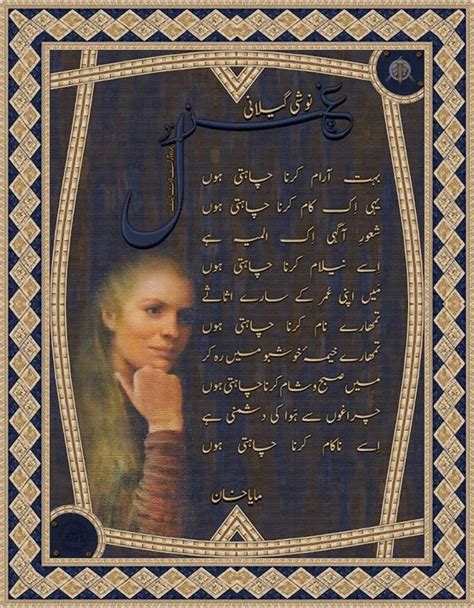 نوشی گیلانی
غزل
بہت آرام کرنا چاہتی ہوں
یہی اِک کام کرنا چاہتی ہوں
شعورِ آگہی اِک المیہ ہے
اسے نیلام کرنا چاہتی ہوں
مَیں اپنی عُمر کے سارے اثاثے
تمھارے نام کرنا چاہتی ہوں
تمھارے خیمۂ خوشبو میں رہ کر
میں صبح و شام کرنا چاہتی ہوں
چراغوں سے ہَوا کی دشمنی ہے
اسے ناکام کرنا چاہتی ہوں
مایا خان